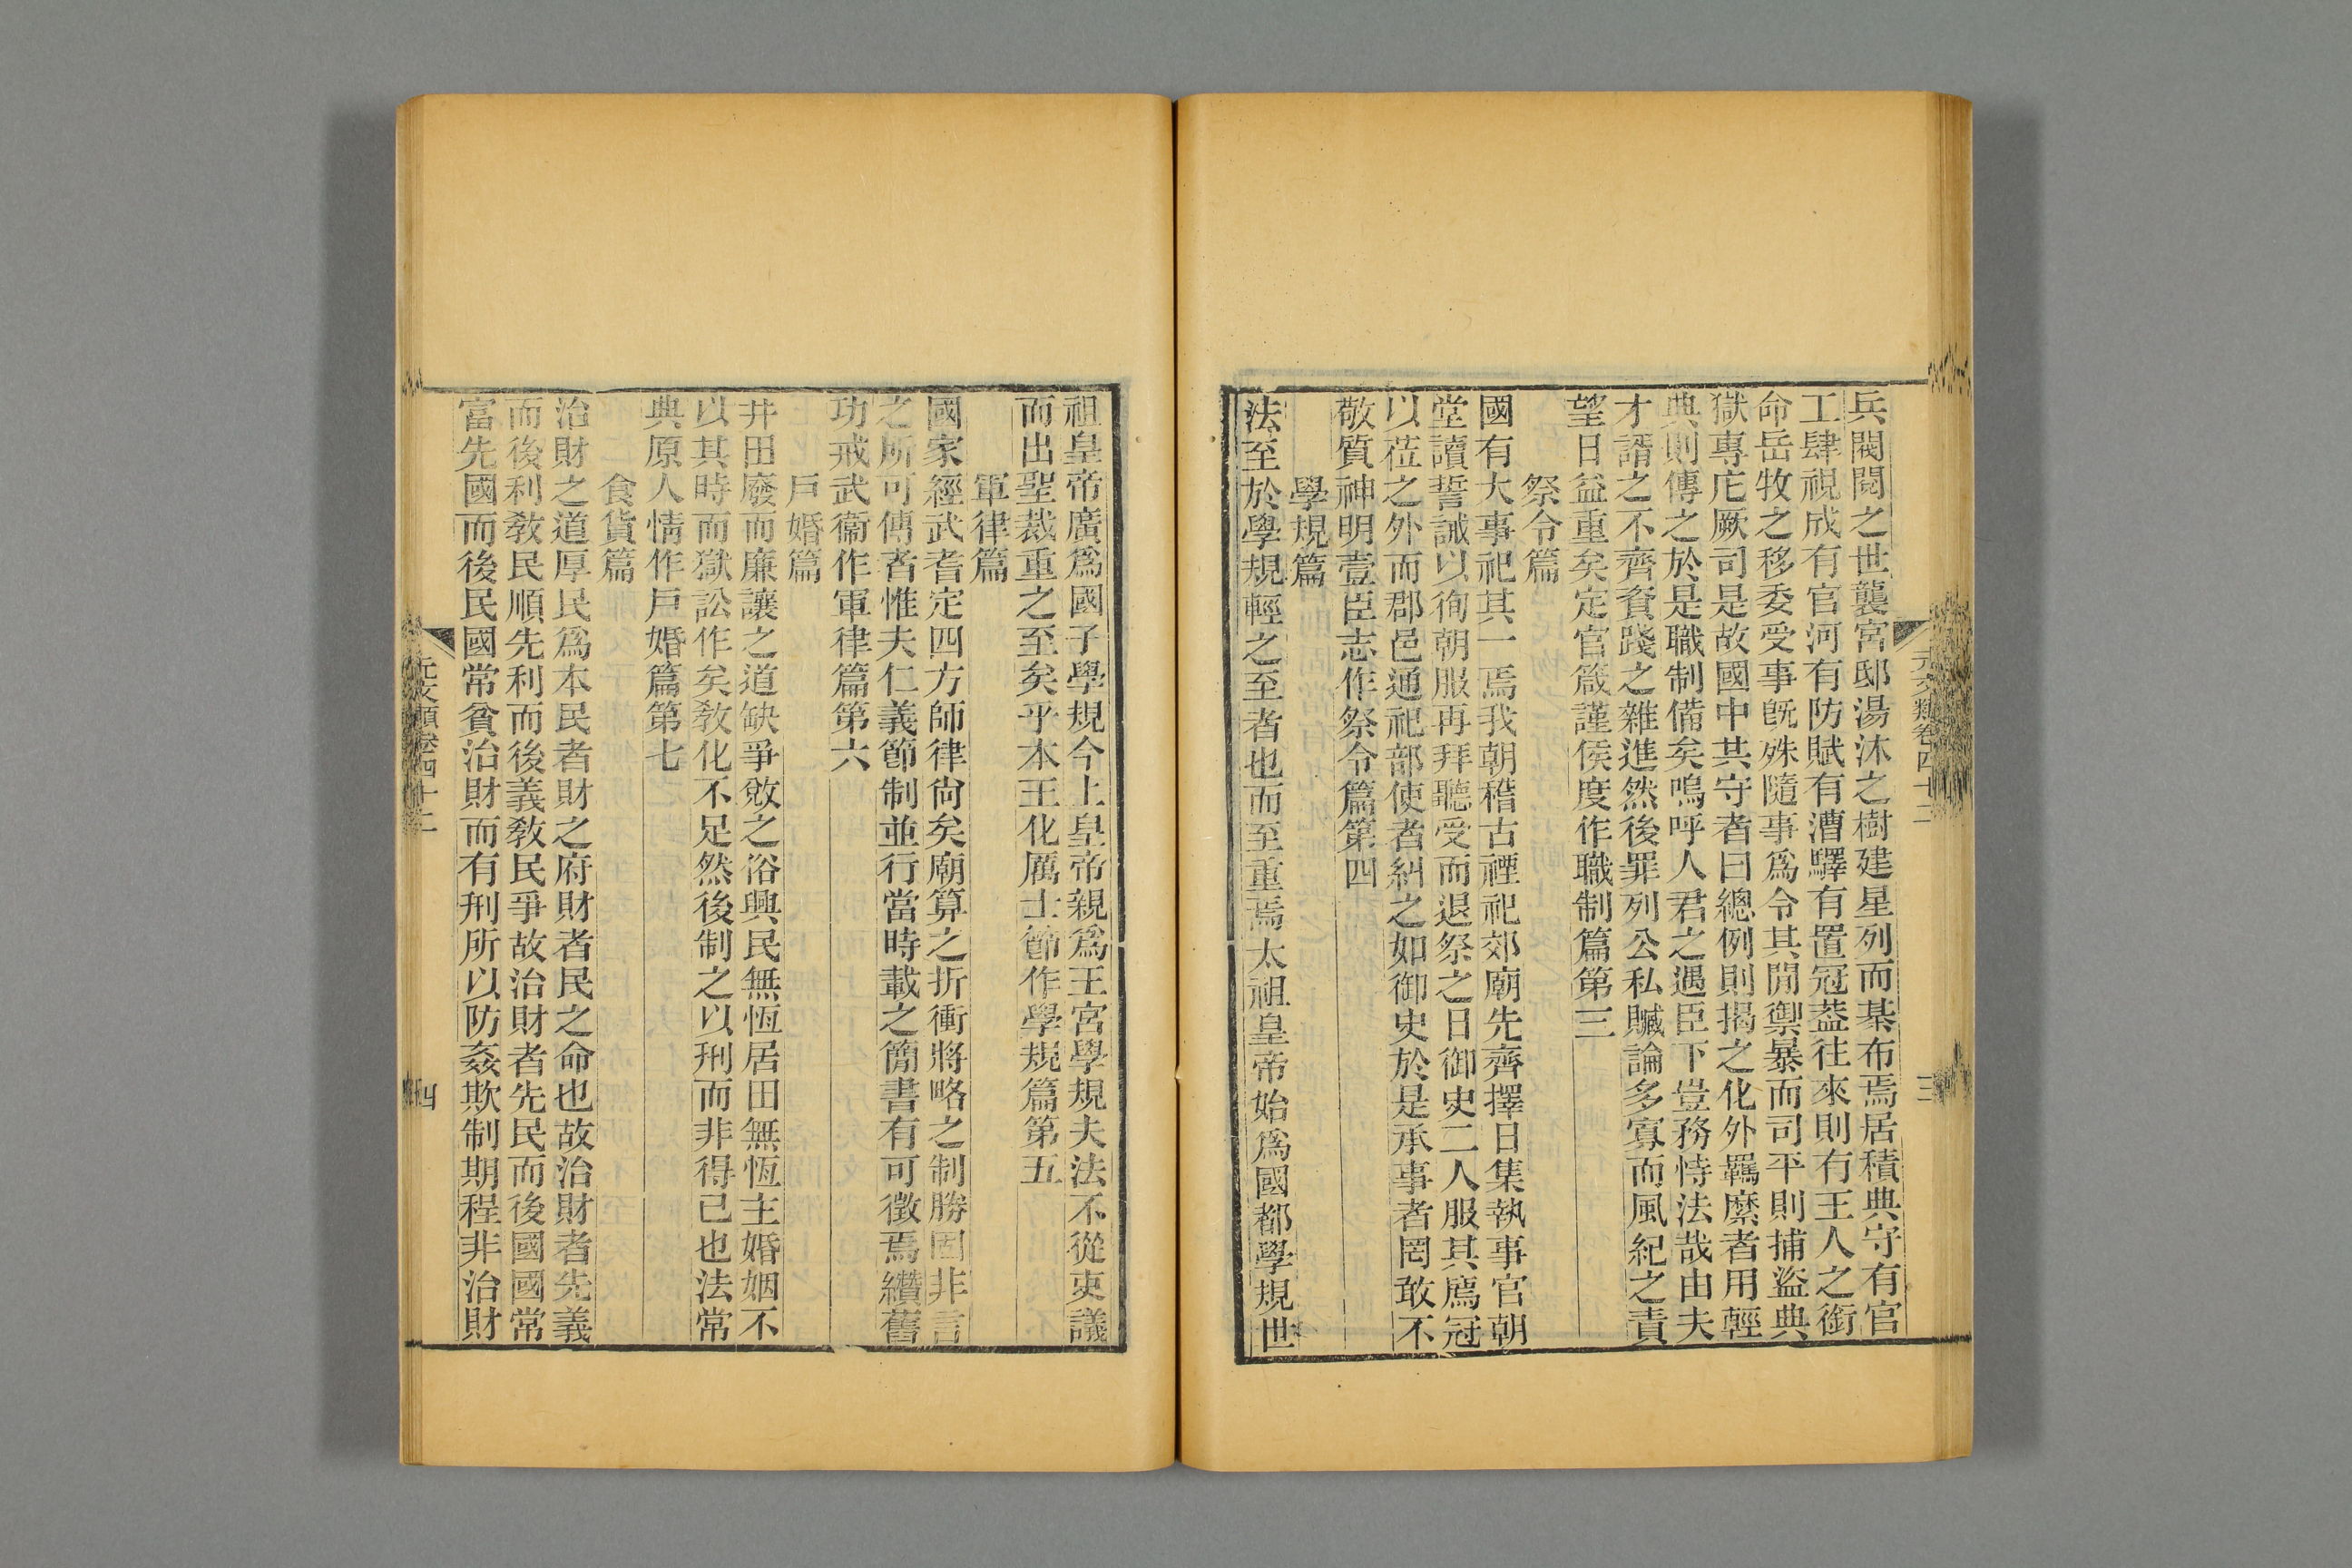 兵閥閱之世襲宮邸湯沐之樹建星列而棊布焉居積典守有官
工肆視成有官河有防賦有漕驛有置冠葢往來則有王人之銜
命岳牧之移委受事旣殊隨事爲令其閒禦暴而司平則捕盜典
獄專庀厥司是故國中其守者曰總例則揭之化外羈縻者用輕
典則傳之於是職制備矣嗚呼人君之遇臣下豈務恃法哉由夫
才諝之不齊資踐之雜進然後罪列公私贓論多寡而風紀之責
望日益重矣定官箴謹侯度作職制篇第三
祭令篇
國有大事祀其一焉我朝稽古禋祀郊廟先齊擇日集執事官朝
堂讀誓誡以徇朝服再拜聽受而退祭之日御史二人服其廌冠
以莅之外而郡邑通祀部使者糾之如御史於是承事者罔敢不
敬質神明壹臣志作祭令篇第四
學規篇
法至於學規輕之至者也而至重焉太祖皇帝始爲國都學規世
元文類卷四十二
三
祖皇帝廣爲國子學規今上皇帝親爲王宮學規夫法不從吏議
而出聖裁重之至矣乎本王化厲士節作學規篇第五
軍律篇
國家經武耆定四方師律尙矣廟算之折衝將略之制勝固非言
之所可傳者惟夫仁義節制並行當時載之簡書有可徵焉纘舊
功戒武衞作軍律篇第六
戶婚篇
井田廢而廉讓之道缺爭敓之俗興民無恆居田無恆主婚姻不
以其時而獄訟作矣敎化不足然後制之以刑而非得已也法常
典原人情作戶婚篇第七
食貨篇
治財之道厚民爲本民者財之府財者民之命也故治財者先義
而後利敎民順先利而後義敎民爭故治財者先民而後國國常
富先國而後民國常貧治財而有刑所以防姦欺制期程非治財
元文類卷四十二
四